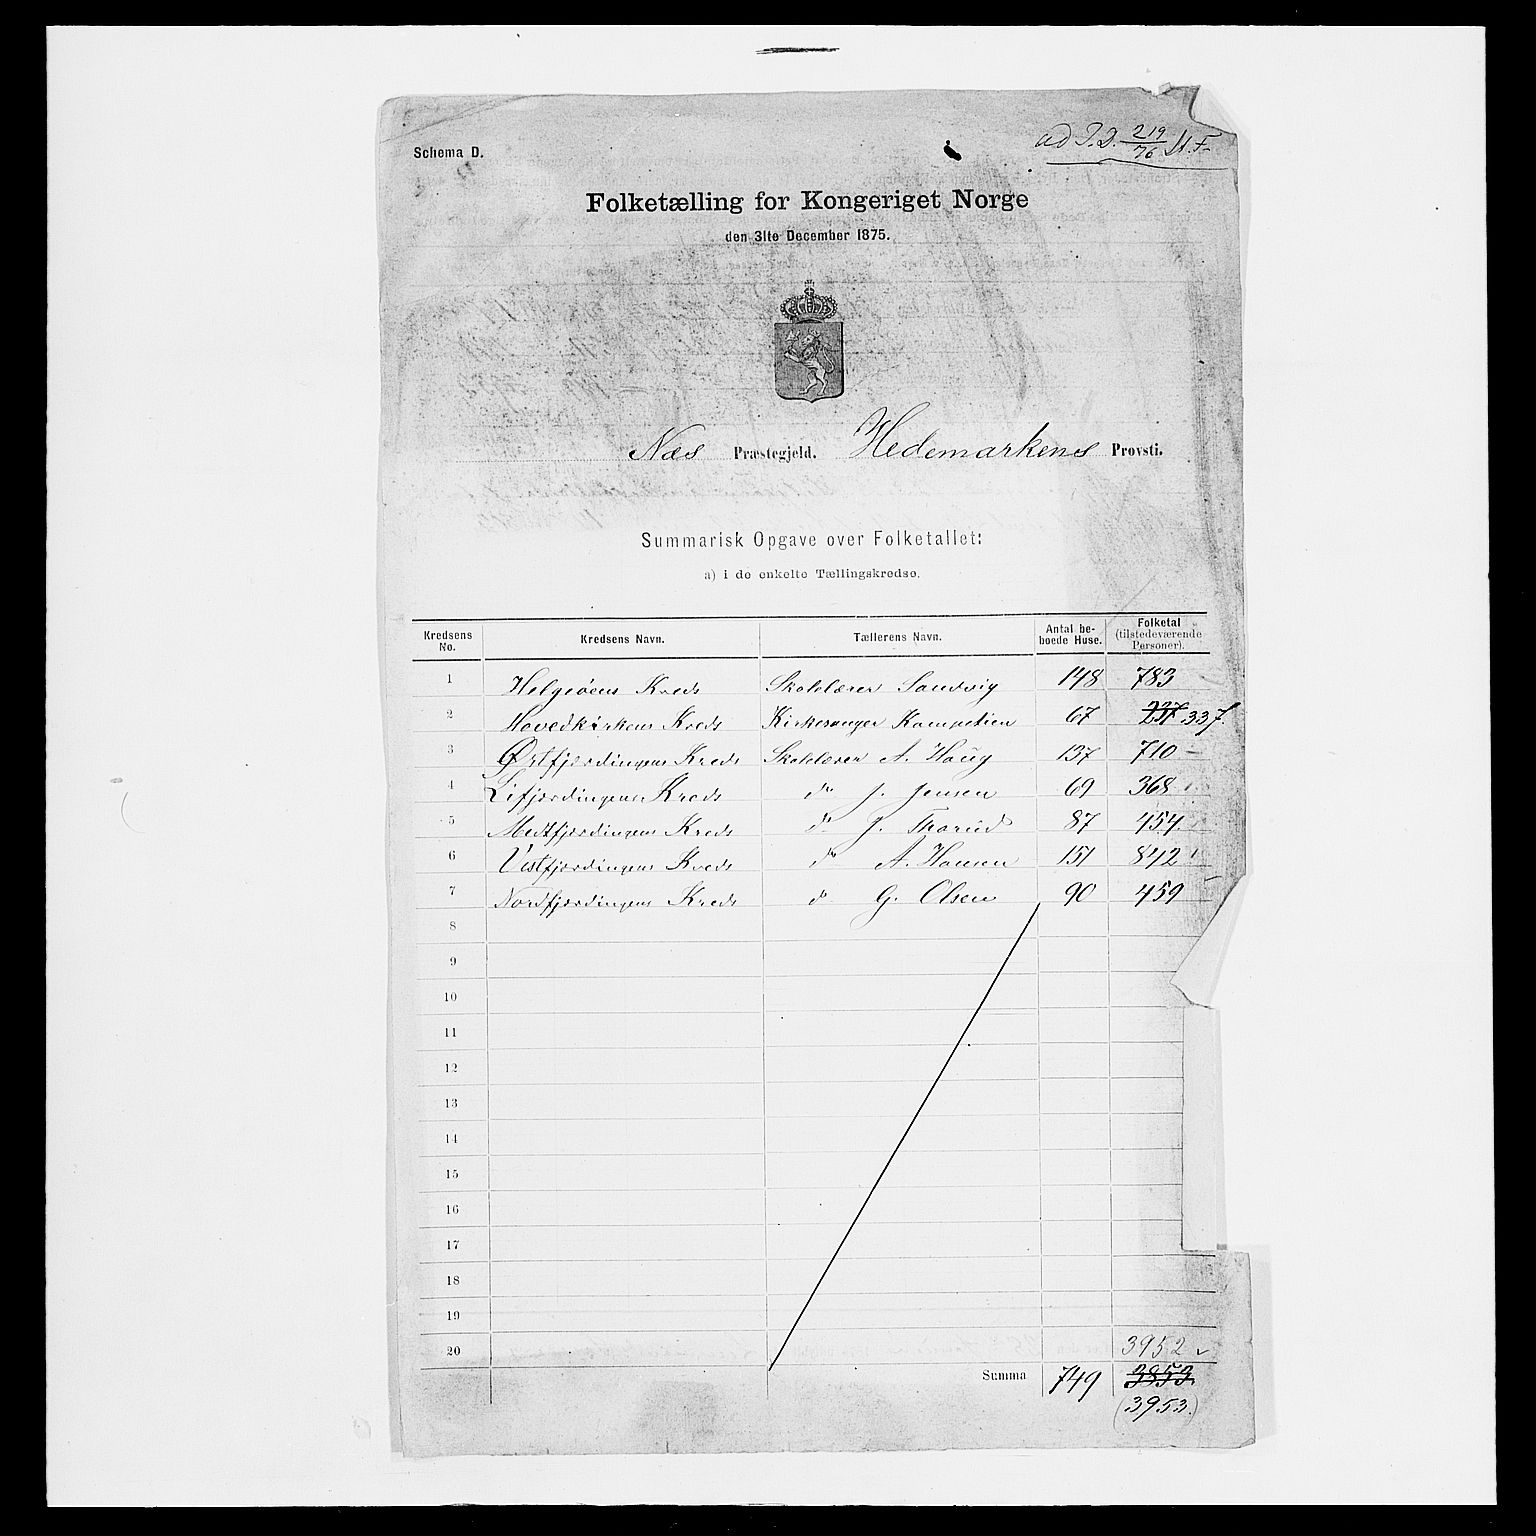 Schema D.
ad J. D. 219/76 M. F.
Folketælling for Kongeriget Norge
den 31te December 1875.
Næs Præstegjeld. Hedemarkens Provsti.
Summarisk Opgave over Folketallet:
a) i de enkelte Tællingskredse.
Kredsens No. Kredsens Navn. Tællerens Navn. Antal beboede Huse. Folketal (tilstedeværende Personer).
1 Helgeøens Kreds Skolelærer Sandvig 148 783
2 Hovedkirkens Kreds Kirkesanger 67 237 337.
3 Østfjerdingens Kreds Skolelærer A. Haug 137 710
4 Lifjerdingens Kreds do J. Jensen 69 368
5 Medfjerdingens Kreds do J. Thorud 87 454
6 Vestfjerdingens Kreds do A. Hansen 151 842
7 Nordfjerdingens Kreds do G. Olsen 90 459
8
9
10
11
12
13
14
15
16
17
18
19
20 3952
Summa 749 3853
(3953.)